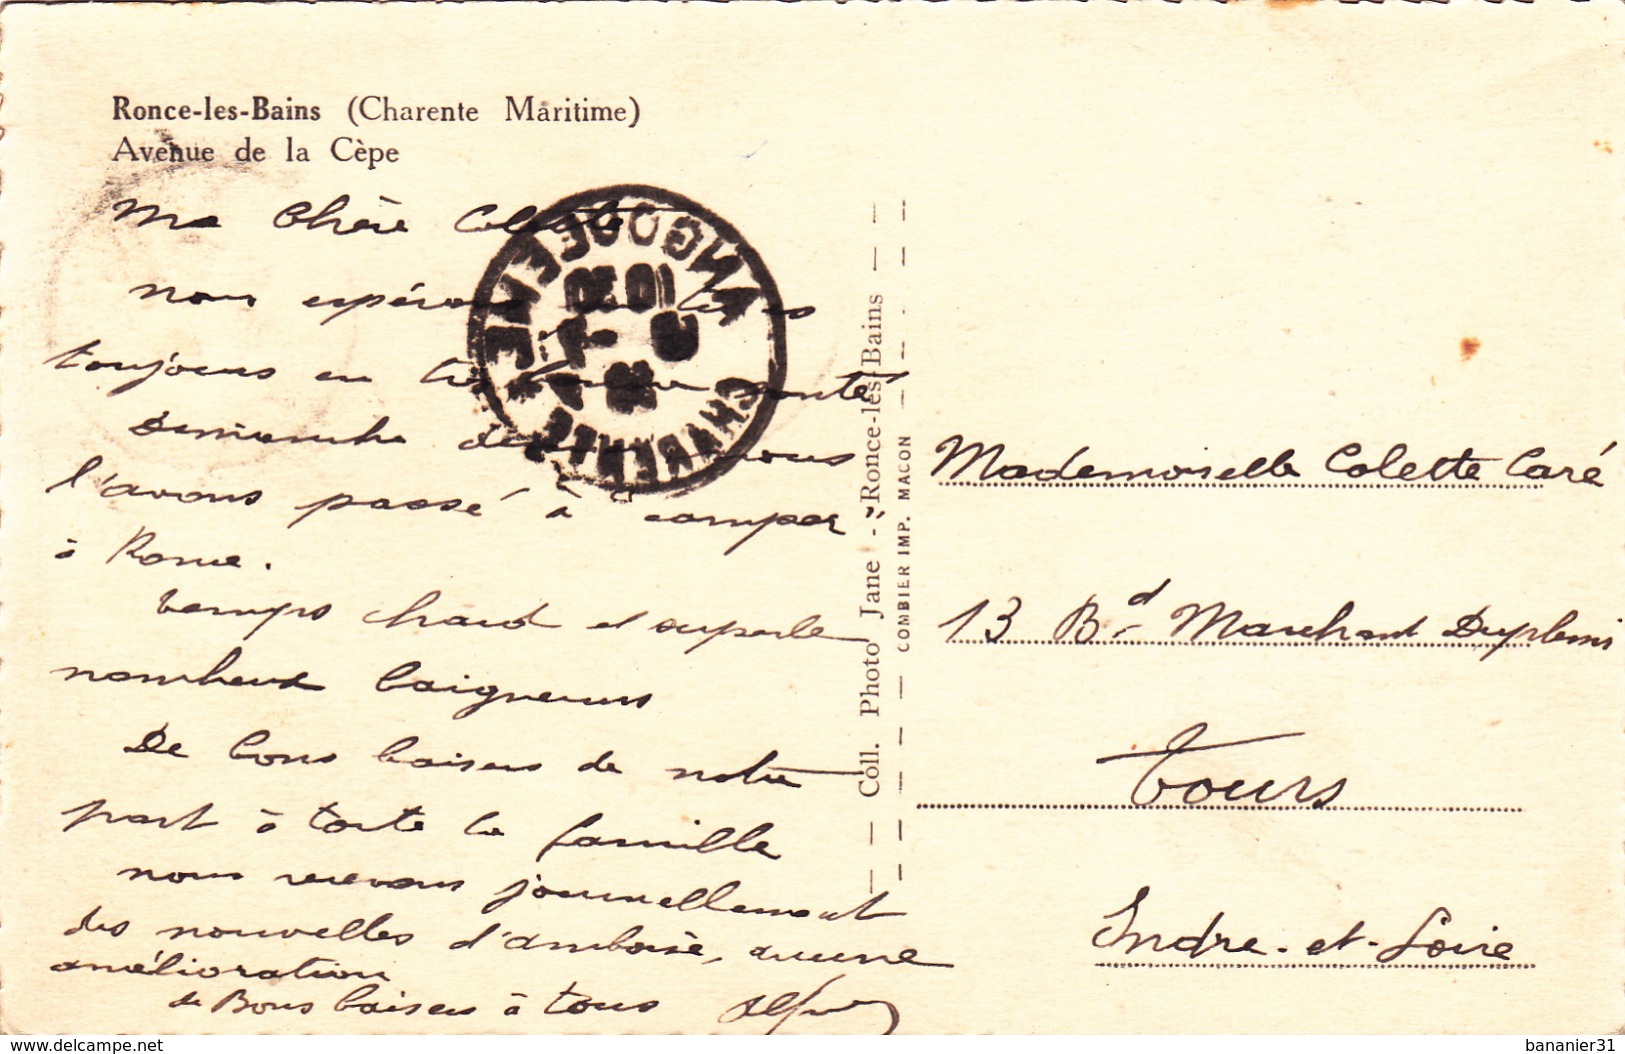 Ronce-les-Bains (Charente Maritime)
Avenue de la Cèpe
Ma Chère Colette
nous espérons
toujours en santé
Dimanche nous
l'avons passé à camper
à Ronce.
temps chaud et superbe
nombreux baigneurs
De bons baisers de notre
part à toute la famille
nous recevons journellement
des nouvelles d'amboise, aucune
amélioration
de Bons baisers à tous
ANGOULEME
CHARENTE
Coll. Photo Jane - "Ronce-les-Bains"
COMBIER IMP. MACON
Mademoiselle Colette Caré
13 Bd Marchant Duplessis
Tours
Indre-et-Loire
www.delcampe.net
bananier31